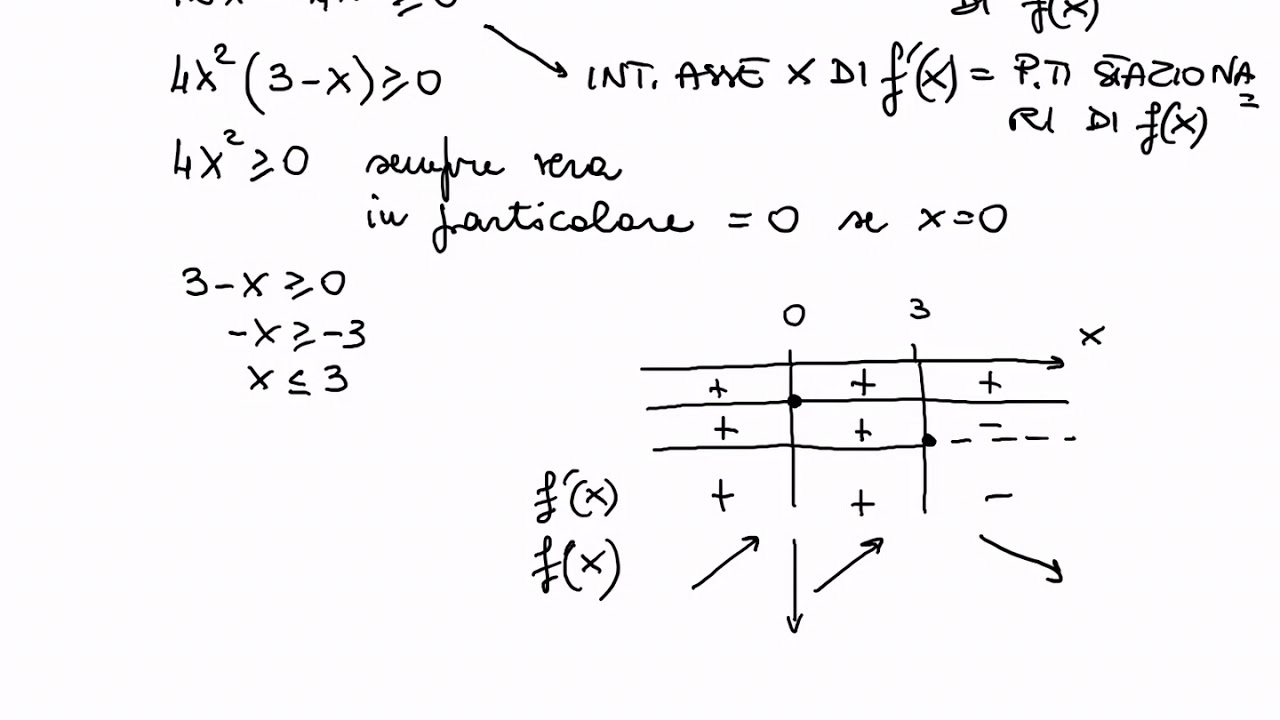 DI f(x)
4x²(3-x)≥0
INT. ASSE X DI f'(x) = P.TI STAZIONA=
RI DI f(x)
4x²≥0 sempre vera
in particolare =0 se x=0
3-x≥0
-x≥-3
x≤3
0 3 x
+ + +
+ + -
f'(x) + + -
f(x)